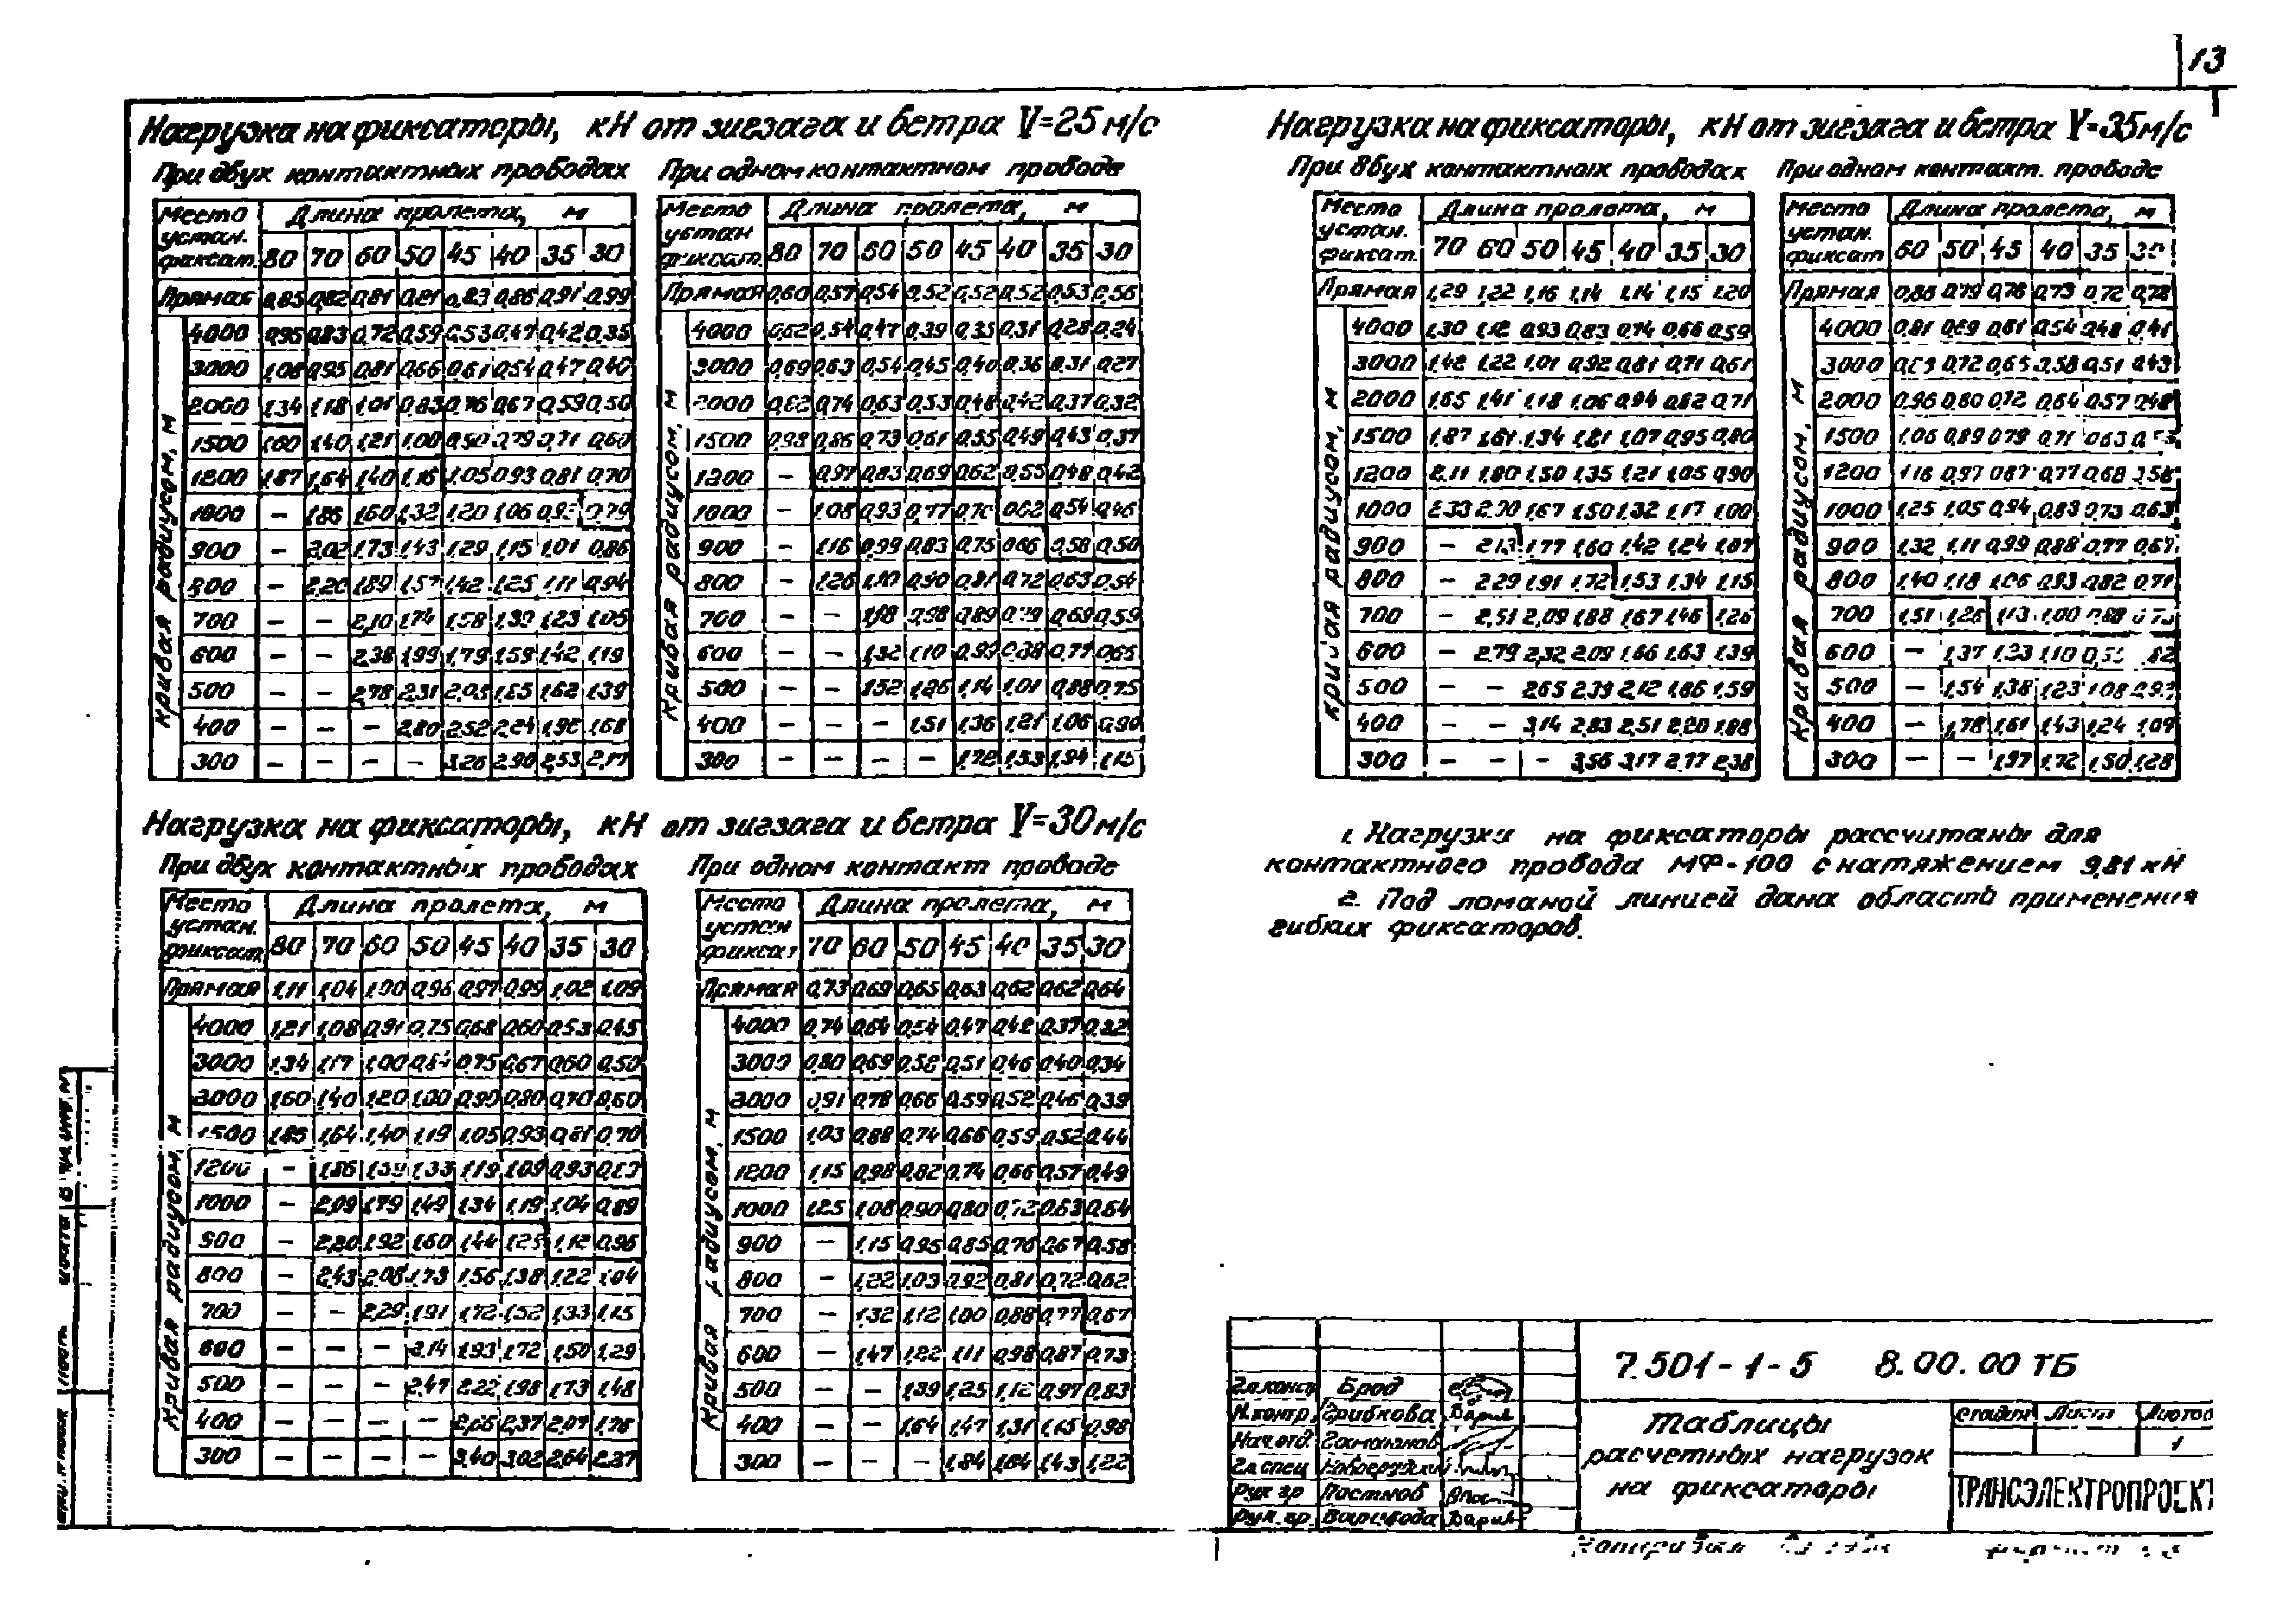 13
Нагрузка на фиксаторы, кН от зигзага и ветра V=25 м/с
При двух контактных проводах
Место устан. фиксат. Длина пролета, м
80 70 60 50 45 40 35 30
Прямая 0,85 0,82 0,81 0,81 0,83 0,86 0,91 0,99
Кривая радиусом, м
4000 0,95 0,83 0,72 0,59 0,53 0,47 0,42 0,35
3000 1,08 0,95 0,81 0,66 0,61 0,54 0,47 0,40
2000 1,34 1,18 1,01 0,83 0,76 0,67 0,59 0,50
1500 1,60 1,40 1,21 1,00 0,90 0,79 0,71 0,60
1200 1,87 1,64 1,40 1,16 1,05 0,93 0,81 0,70
1000 — 1,86 1,60 1,32 1,20 1,06 0,79
900 — 2,02 1,73 1,43 1,29 1,15 1,01 0,86
800 — 2,20 1,89 1,57 1,42 1,25 1,11 0,94
700 — — 2,10 1,74 1,58 1,39 1,23 1,05
600 — — 2,38 1,99 1,79 1,59 1,42 1,19
500 — — 2,78 2,31 1,62 1,39
400 — — — 2,80 2,52 2,24 1,96 1,68
300 — — — — 3,26 2,90 2,53 2,17
При одном контактном проводе
Место устан фиксат. Длина пролета, м
80 70 60 50 45 40 35 30
Прямая 0,60 0,57 0,54 0,52 0,52 0,52 0,53 0,56
Кривая радиусом, м
4000 0,62 0,54 0,47 0,39 0,35 0,31 0,28 0,24
3000 0,69 0,63 0,54 0,45 0,40 0,36 0,31 0,27
2000 0,82 0,74 0,63 0,53 0,48 0,42 0,37 0,32
1500 0,98 0,86 0,73 0,61 0,55 0,49 0,43 0,37
1200 — 0,97 0,83 0,69 0,62 0,55 0,48 0,42
1000 — 1,08 0,93 0,77 0,70 0,62 0,54 0,46
900 — 1,16 0,99 0,83 0,75 0,66 0,58 0,50
800 — 1,26 1,10 0,90 0,81 0,72 0,63 0,54
700 — — 1,18 0,98 0,89 0,79 0,69 0,59
600 — — 1,32 1,10 0,99 0,88 0,77 0,65
500 — — 1,52 1,26 1,14 1,01 0,88 0,75
400 — — — 1,51 1,36 1,21 1,06 0,90
300 — — — — 1,72 1,53 1,34 1,15
Нагрузка на фиксаторы, кН от зигзага и ветра V=35 м/с
При двух контактных проводах
Место устан. фиксат. Длина пролета, м
70 60 50 45 40 35 30
Прямая 1,29 1,22 1,16 1,14 1,14 1,15 1,20
Кривая радиусом, м
4000 1,30 1,12 0,93 0,83 0,74 0,66 0,59
3000 1,42 1,22 1,01 0,92 0,81 0,71 0,61
2000 1,65 1,41 1,18 1,06 0,94 0,82 0,71
1500 1,87 1,61 1,34 1,21 1,07 0,95 0,80
1200 2,11 1,80 1,50 1,35 1,21 1,05 0,90
1000 2,33 2,00 1,67 1,50 1,32 1,17 1,00
900 — 2,13 1,77 1,60 1,42 1,24 1,07
800 — 2,29 1,91 1,72 1,53 1,34 1,15
700 — 2,51 2,09 1,88 1,67 1,46 1,26
600 — 2,79 2,32 2,09 1,86 1,63 1,39
500 — — 2,65 2,39 2,12 1,86 1,59
400 — — 3,14 2,83 2,51 2,20 1,88
300 — — — 3,56 3,17 2,77 2,38
При одном контакт. проводе
Место устан. фиксат Длина пролета, м
60 50 45 40 35 30
Прямая 0,86 0,79 0,76 0,73 0,72 0,72
Кривая радиусом, м
4000 0,81 0,69 0,61 0,54 0,48 0,41
3000 0,72 0,65 0,58 0,51 0,43
2000 0,96 0,80 0,72 0,64 0,57 0,48
1500 1,06 0,89 0,79 0,71 0,63
1200 1,16 0,97 0,87 0,77 0,68 0,58
1000 1,25 1,05 0,94 0,83 0,73 0,63
900 1,32 1,11 0,99 0,88 0,77 0,67
800 1,40 1,18 1,06 0,93 0,82 0,71
700 1,51 1,26 1,13 1,00 0,88 0,75
600 — 1,37 1,23 1,10
500 — 1,54 1,38 1,23 1,08
400 — 1,78 1,61 1,43 1,24 1,09
300 — — 1,97 1,72 1,50 1,28
Нагрузка на фиксаторы, кН от зигзага и ветра V=30 м/с
При двух контактных проводах
Место устан. фиксат Длина пролета, м
80 70 60 50 45 40 35 30
Прямая 1,11 1,04 1,00 0,96 0,97 0,99 1,02 1,09
Кривая радиусом, м
4000 1,21 1,08 0,91 0,75 0,68 0,60 0,53 0,45
3000 1,34 1,17 1,00 0,84 0,75 0,67 0,60 0,50
2000 1,60 1,40 1,20 1,00 0,90 0,80 0,70 0,60
1500 1,85 1,64 1,40 1,19 1,05 0,93 0,81 0,70
1200 — 1,86 1,59 1,33 1,19 1,09 0,93
1000 — 2,09 1,79 1,49 1,34 1,19 1,04 0,89
900 — 2,20 1,92 1,60 1,44 1,12 0,96
800 — 2,43 2,08 1,73 1,56 1,38 1,22 1,04
700 — — 2,29 1,91 1,72 1,52 1,33 1,15
600 — — — 2,14 1,93 1,72 1,50 1,29
500 — — — 2,47 2,22 1,98 1,73 1,48
400 — — — — 2,37 2,07 1,76
300 — — — — 3,40 3,02 2,64 2,27
При одном контакт проводе
Место устан фиксат Длина пролета, м
70 60 50 45 40 35 30
Прямая 0,73 0,69 0,65 0,63 0,62 0,62 0,64
Кривая радиусом, м
4000 0,74 0,64 0,54 0,47 0,42 0,37 0,32
3000 0,80 0,69 0,58 0,51 0,46 0,40 0,34
2000 0,91 0,78 0,66 0,59 0,52 0,46 0,39
1500 1,03 0,88 0,74 0,66 0,59 0,52 0,44
1200 1,15 0,98 0,82 0,74 0,66 0,57 0,49
1000 1,25 1,08 0,90 0,80 0,72 0,63 0,54
900 — 1,15 0,95 0,85 0,76 0,67 0,58
800 — 1,22 1,03 0,92 0,81 0,72 0,62
700 — 1,32 1,12 1,00 0,88 0,77 0,67
600 — 1,47 1,22 1,11 0,98 0,87 0,73
500 — — 1,39 1,25 1,12 0,97 0,83
400 — — 1,64 1,47 1,31 1,15 0,98
300 — — — 1,84 1,64 1,43 1,22
1. Нагрузки на фиксаторы рассчитаны для
контактного провода МФ-100 с натяжением 9,81 кН
2. Под ломаной линией дана область применения
гибких фиксаторов.
7.501-1-5 8.00.00 ТБ
Гл.констр Брод
Н.контр. Грибкова
Нач.отд.
Гл.спец
Рук гр Постнов
Рук.гр.
Таблицы
расчетных нагрузок
на фиксаторы
Стадия Лист Листов
1
ТРАНСЭЛЕКТРОПРОЕКТ